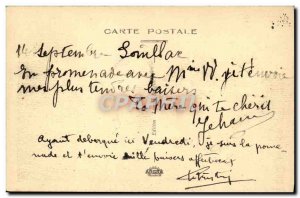 CARTE POSTALE
14 Septembre Souillac
En promenade avec Mme W. je t'envoie
mes plus tendres baisers
Ta Mère qui te chérit
Jehanne
Ayant débarqué ici Vendredi, je suis la prome
nade et t'envoie mille baisers affectueux